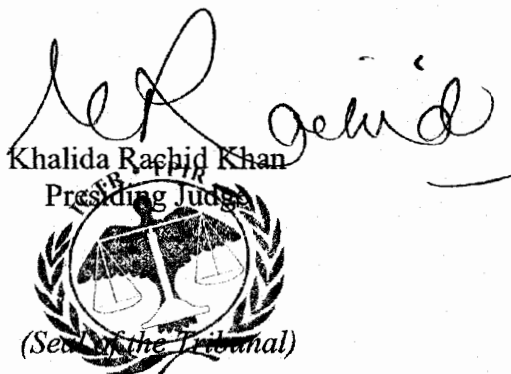 Khalida Rachid Khan
Presiding Judge
ICTR • TPIR
(Seal of the Tribunal)